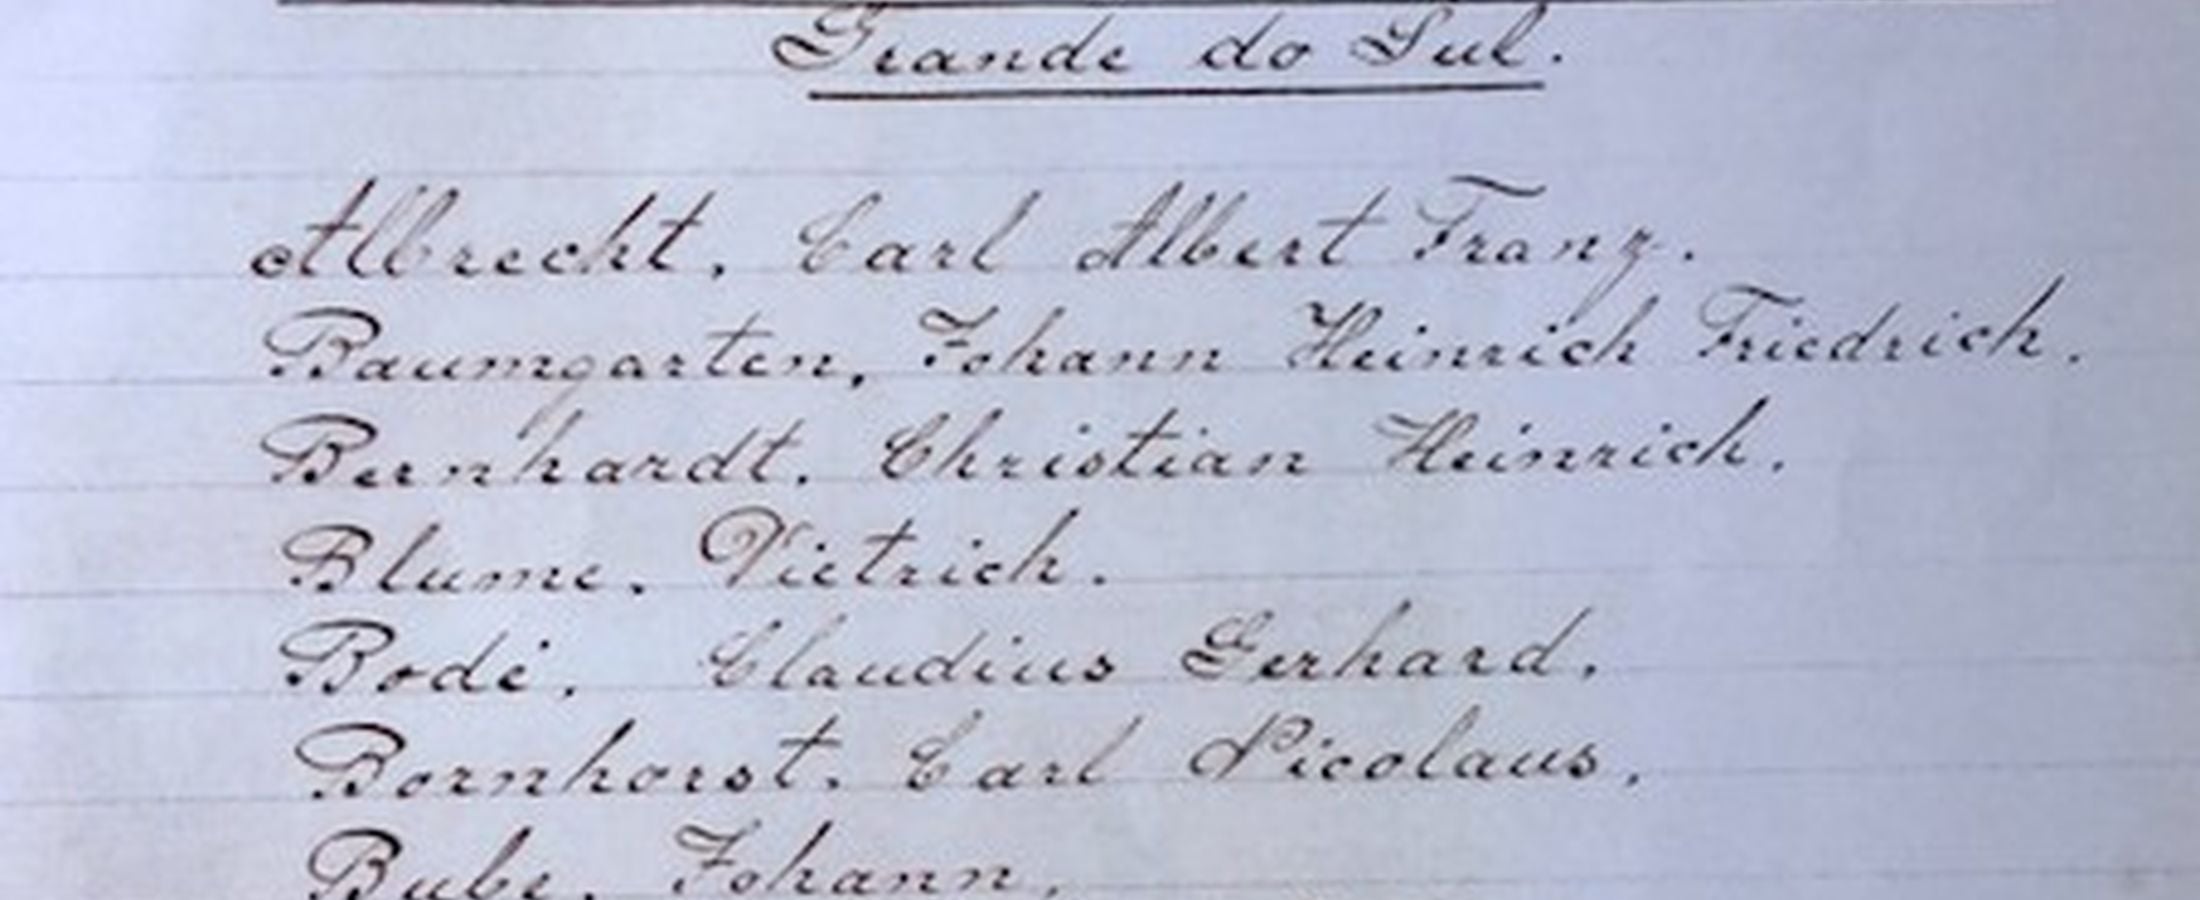 Grande do Sul.
Albrecht, Carl Albert Franz.
Baumgarten, Johann Heinrich Friedrich.
Bernhardt, Christian Heinrich.
Blume, Dietrich.
Bodé, Claudius Gerhard.
Bornhorst, Carl Nicolaus.
Bube, Johann.